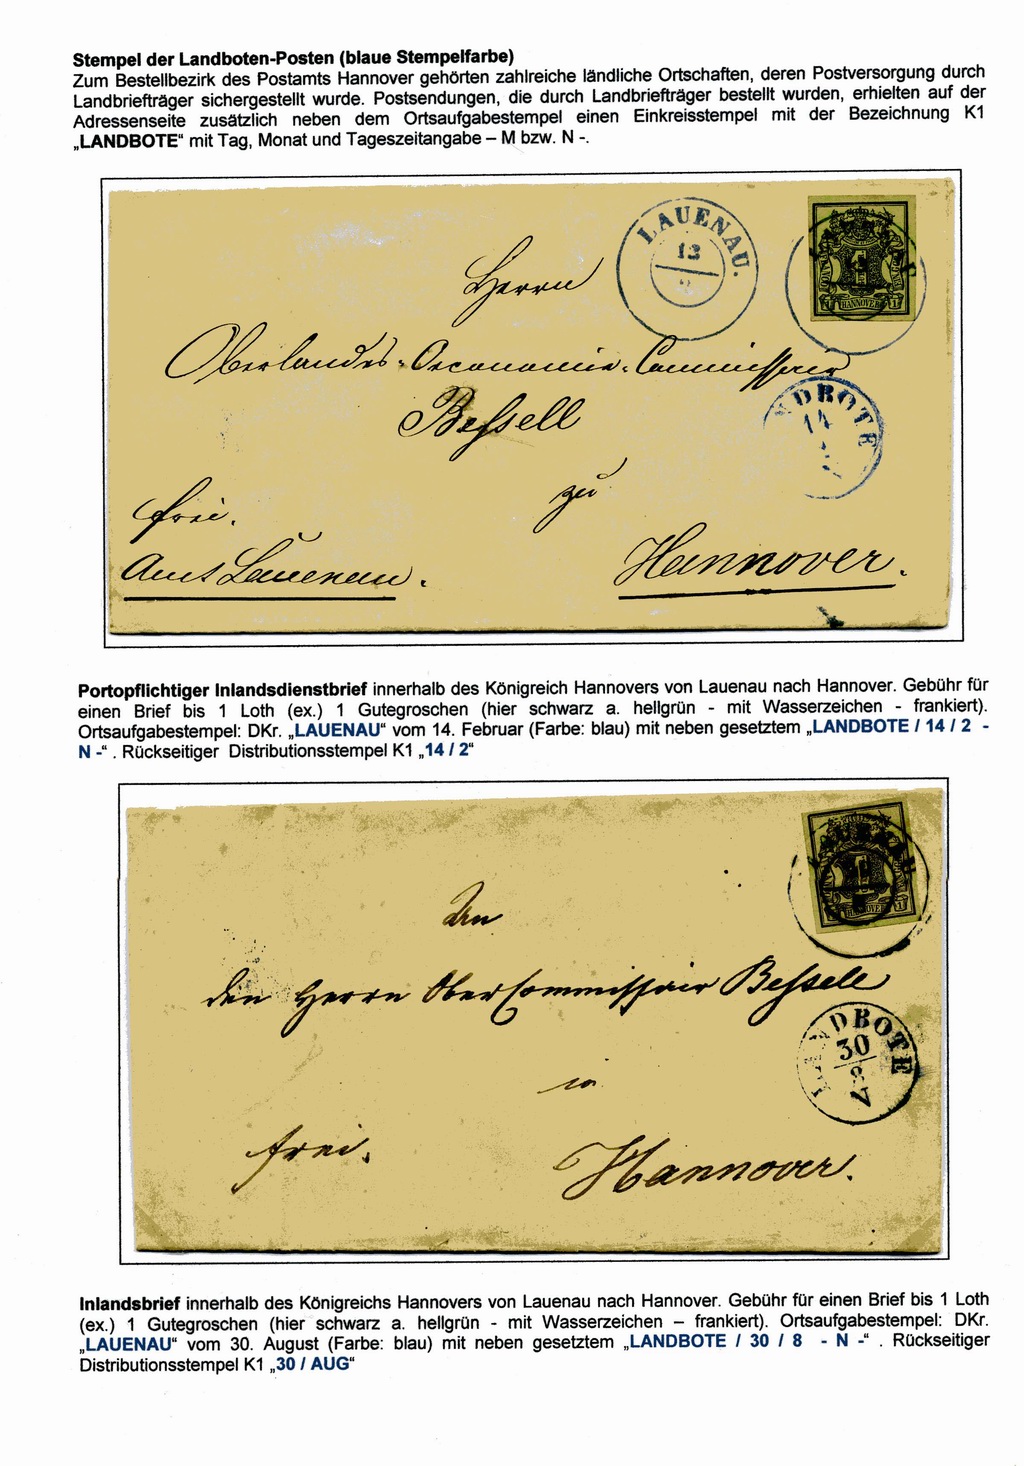 Stempel der Landboten-Posten (blaue Stempelfarbe)
Zum Bestellbezirk des Postamts Hannover gehörten zahlreiche ländliche Ortschaften, deren Postversorgung durch
Landbriefträger sichergestellt wurde. Postsendungen, die durch Landbriefträger bestellt wurden, erhielten auf der
Adressenseite zusätzlich neben dem Ortsaufgabestempel einen Einkreisstempel mit der Bezeichnung K1
„LANDBOTE“ mit Tag, Monat und Tageszeitangabe – M bzw. N -.
LAUENAU.
13
HANNOVER
Herrn
Oberlandes-Oeconomie-Commissair
NDBOTE
14
Bessell
zu
frei.
Amt Lauenau.
Hannover.
Portopflichtiger Inlandsdienstbrief innerhalb des Königreich Hannovers von Lauenau nach Hannover. Gebühr für
einen Brief bis 1 Loth (ex.) 1 Gutegroschen (hier schwarz a. hellgrün - mit Wasserzeichen - frankiert).
Ortsaufgabestempel: DKr. „LAUENAU“ vom 14. Februar (Farbe: blau) mit neben gesetztem „LANDBOTE / 14 / 2 -
N -“ . Rückseitiger Distributionsstempel K1 „14 / 2“
HANNOVER
An
den Herrn Ober Commissair Bessele
LANDBOTE
30
8
N
in
frei.
Hannover.
Inlandsbrief innerhalb des Königreichs Hannovers von Lauenau nach Hannover. Gebühr für einen Brief bis 1 Loth
(ex.) 1 Gutegroschen (hier schwarz a. hellgrün - mit Wasserzeichen – frankiert). Ortsaufgabestempel: DKr.
„LAUENAU“ vom 30. August (Farbe: blau) mit neben gesetztem „LANDBOTE / 30 / 8 - N -“ . Rückseitiger
Distributionsstempel K1 „30 / AUG“